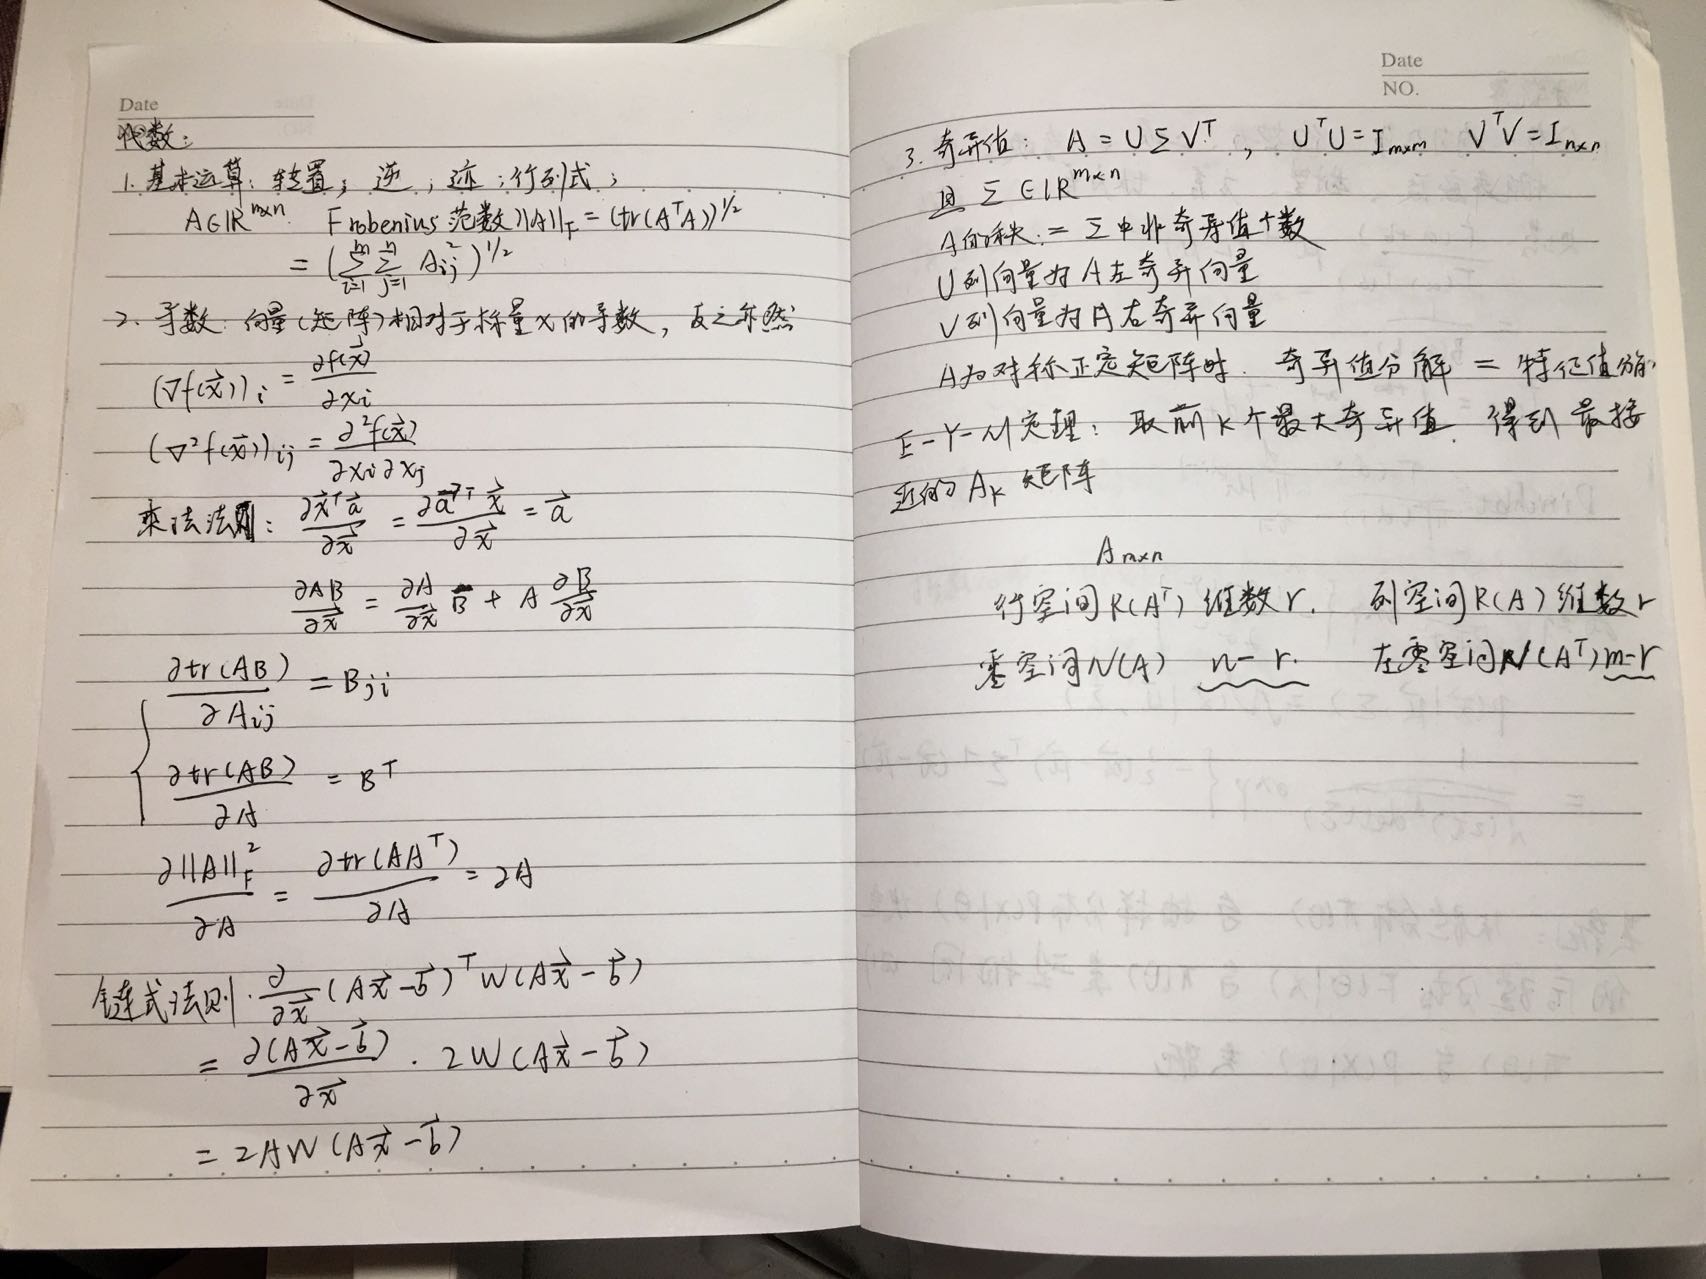 Date
代数:
1. 基本运算: 转置; 逆; 迹; 行列式;
A∈ℝ^{m×n} Frobenius 范数 ||A||_F = (tr(A^T A))^{1/2}
= (∑_{i=1}^{m} ∑_{j=1}^{n} A_{ij}^2)^{1/2}
2. 导数: 向量(矩阵)相对于标量x的导数, 反之亦然
(∇f(x⃗))_i = ∂f(x⃗)/∂x_i
(∇²f(x⃗))_{ij} = ∂²f(x⃗)/∂x_i∂x_j
乘法法则: ∂x⃗^T a⃗/∂x⃗ = ∂a⃗^T x⃗/∂x⃗ = a⃗
∂AB/∂x⃗ = ∂A/∂x⃗ B + A ∂B/∂x⃗
∂tr(AB)/∂A_{ij} = B_{ji}
∂tr(AB)/∂A = B^T
∂||A||_F^2/∂A = ∂tr(AA^T)/∂A = 2A
链式法则: ∂/∂x⃗ (Ax⃗-b⃗)^T W(Ax⃗-b⃗)
= ∂(Ax⃗-b⃗)/∂x⃗ · 2W(Ax⃗-b⃗)
= 2AW(Ax⃗-b⃗)
Date
NO.
3. 奇异值: A = UΣV^T, U^T U = I_{m×m} V^T V = I_{n×n}
且 Σ∈ℝ^{m×n}
A的秩 = Σ中非奇异值个数
U列向量为A左奇异向量
V列向量为A右奇异向量
A为对称正定矩阵时. 奇异值分解 = 特征值分解
E-Y-M定理: 取前k个最大奇异值. 得到最接
近的A_k矩阵
A_{m×n}
行空间R(A^T)维数r. 列空间R(A)维数r
零空间N(A) n-r. 左零空间N(A^T)m-r